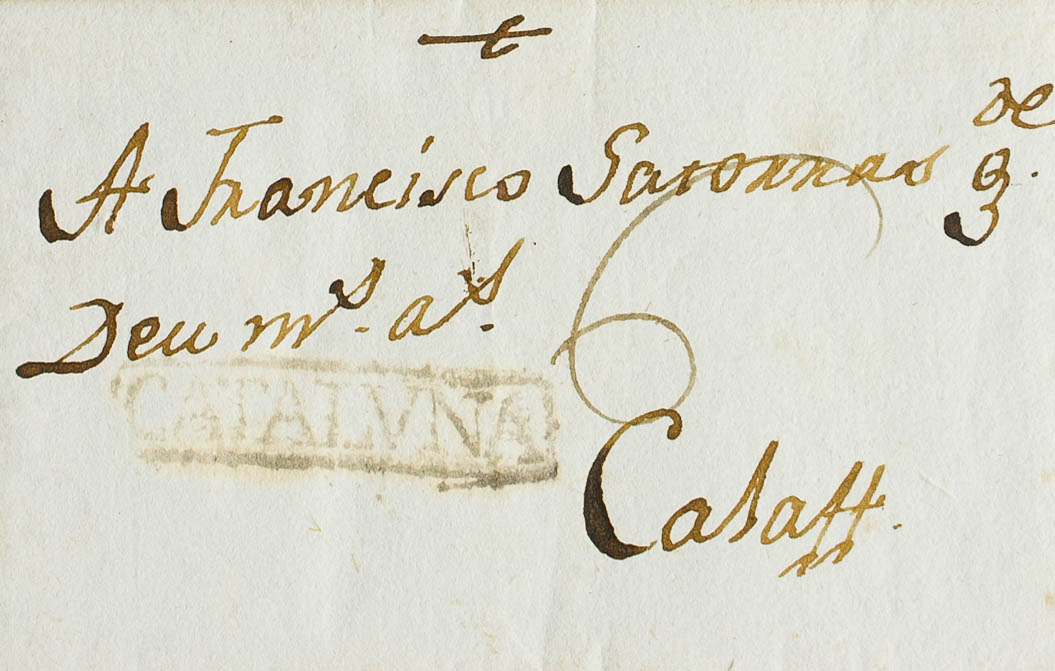 A Francisco Satorras g.de
Deu m.s a.s
CATALUNA
6
Calaff.